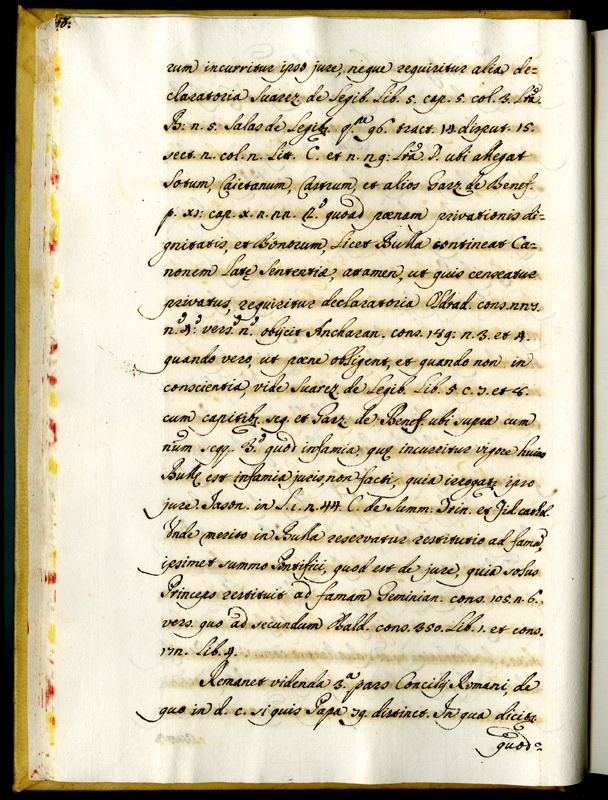 rum incurritur ipso jure, neque requiritur alia de=
claratoria Suarez de Legib. Lib. 5. cap. 5. col. 3. Lrã
B: n. 5. Salas de Legibꝫ. q.ne 96. tract. 14. disput. 15.
sect. n. col. n. Lit. C. et n. n9: Lrã D. ubi allegat
Sotum, Caietanum, Castrum, et alios Garz. de Benef.
p. xi: cap. x. n. nn. 2.º quoad pœnam privationis di=
gnitatis, et Bonorum, Licet Bulla contineat Ca=
nonem Latę Sententiæ, attamen, ut quis censeatur
privatus, requiritur declaratoria Oldrad. cons. nn5.
n.º 4.º vers. n.º obijcit Ancharan. cons. 189: n. 3. et 4.
quando vero, ut pœne obligent, et quando non in
conscientia, vide Suarez. de Legib. Lib. 5 c. 7. et 8.
cum capitibꝫ seq. et Garz. de Benef. ubi supra cum
num seqq. 3.º quod infamia, quę incurritur vigore huius
Bullę est infamia juris, non facti, quia irrogatꝫ ipso
jure Jason. in L. 1. n. 44. C. de Summ. Trin. et Fid. cathol.
Unde merito in Bulla reservatur restitutio ad famã,
ipsimet summo Pontifici, quod est de jure, quia solus
Princeps restituit ad famam Geminian. cons. 105. n. 6.
vers. quo ad secundum Bald. cons. 350. Lib. 1. et cons.
17n. Lib. 4.
Remanet videnda 3.ª pars Concilij Romani, de
quo in d. c. si quis Papa 79. distinct. In qua dicitꝫ
quod=